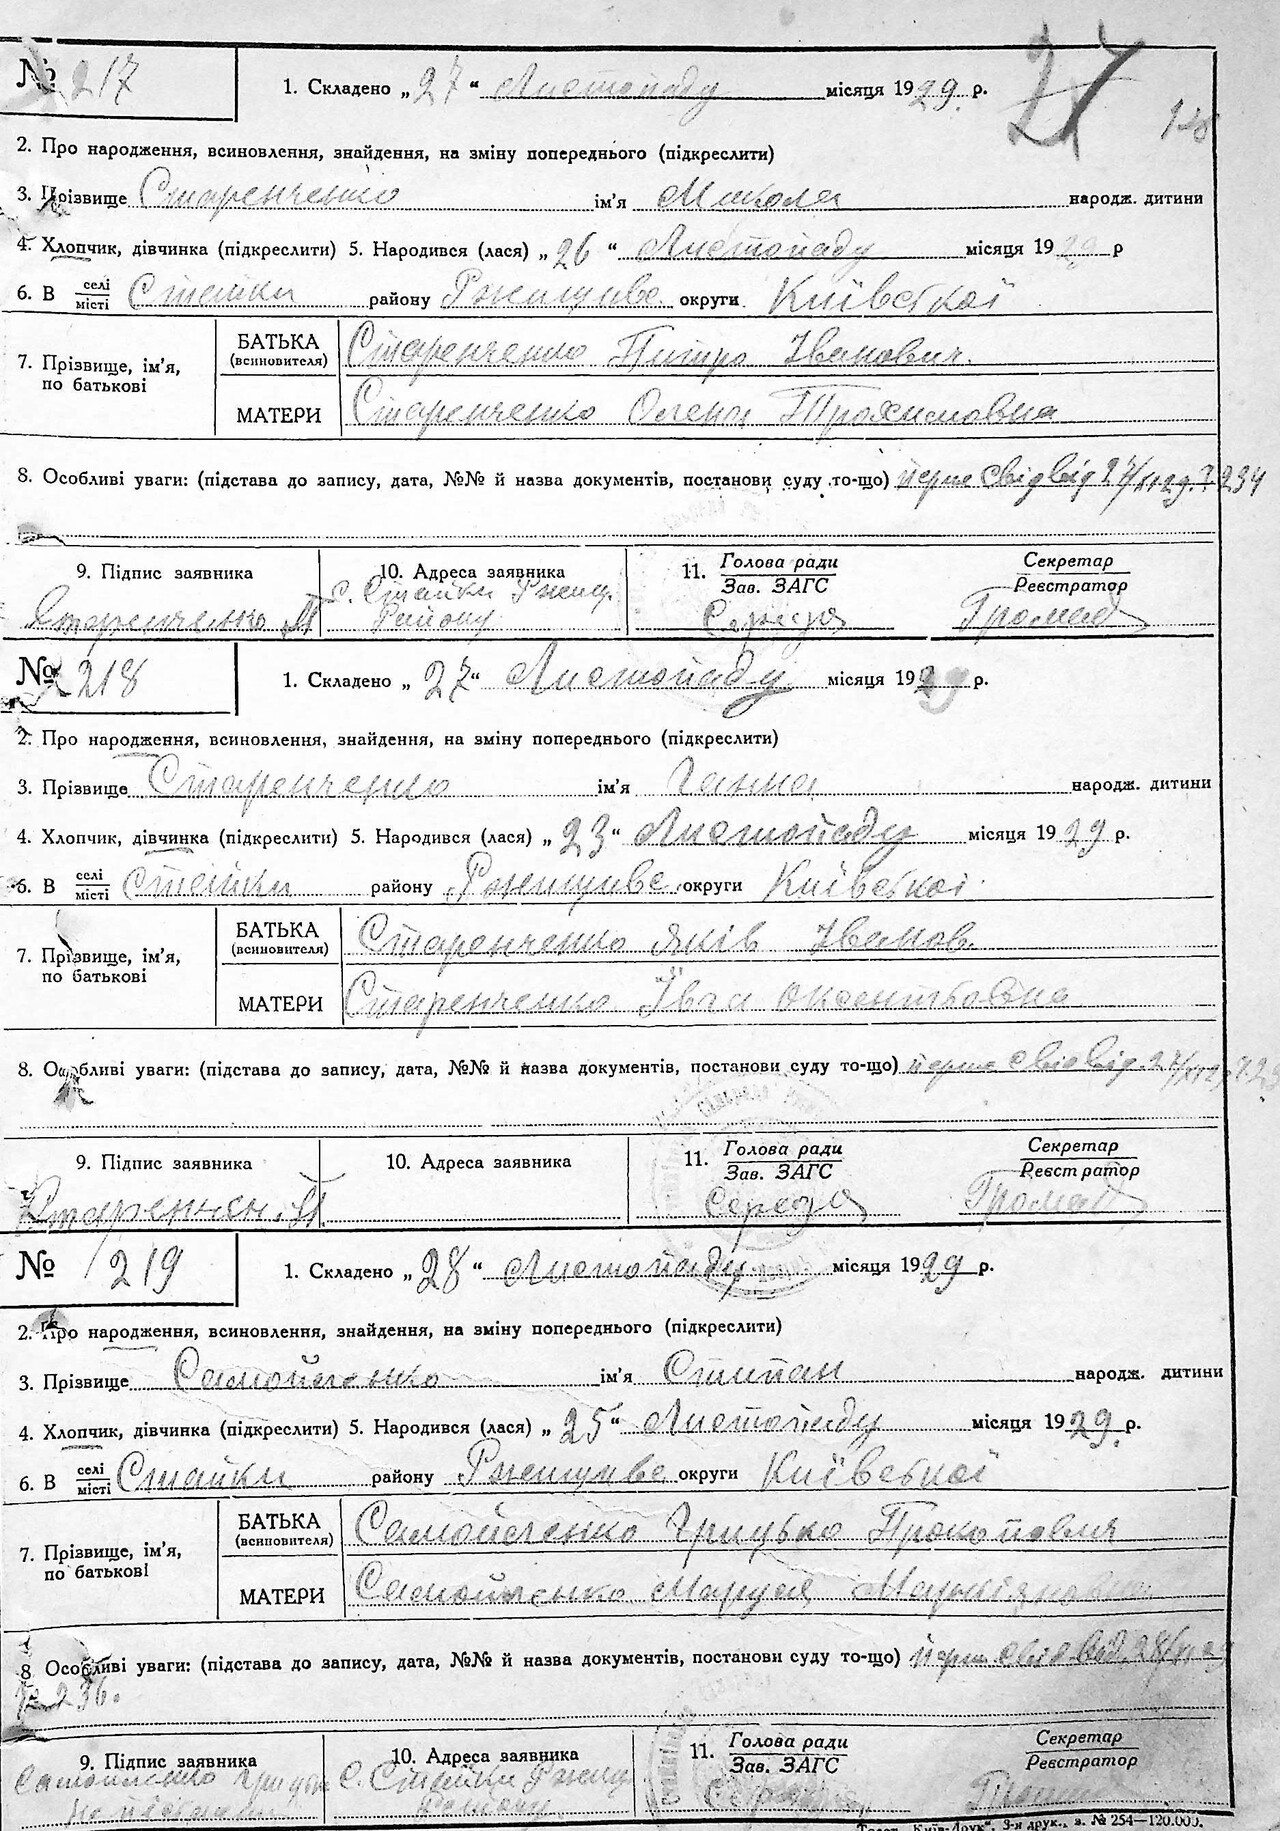 27
№ 217 1. Складено „27" Листопаду місяця 1929 р.
2. Про народження, всиновлення, знайдення, на зміну попереднього (підкреслити)
3. Прізвище Старенченко ім'я Микола народж. дитини
4. Хлопчик, дівчинка (підкреслити) 5. Народився (лася) „26" Листопаду місяця 1929 р
6. В селі/місті Стайки району Ржищивс округи Київської
7. Прізвище, ім'я, по батькові
БАТЬКА (всиновителя) Старенченко Питро Іванович.
МАТЕРИ Старенченко Олена Трохимовна
8. Особливі уваги: (підстава до запису, дата, №№ й назва документів, постанови суду то-що) перше свід від 27/XI 29 р. № 234
9. Підпис заявника 10. Адреса заявника 11. Голова ради Секретар
Зав. ЗАГС Реєстратор
Старенченко П с. Стайки Ржищ. Району Середа Громад
№ 218 1. Складено „27" Листопаду місяця 1929 р.
2. Про народження, всиновлення, знайдення, на зміну попереднього (підкреслити)
3. Прізвище Старенченко ім'я Ганна народж. дитини
4. Хлопчик, дівчинка (підкреслити) 5. Народився (лася) „23" Листопаду місяця 1929 р.
6. В селі/місті Стайки району Ржищивс округи Київської
7. Прізвище, ім'я, по батькові
БАТЬКА (всиновителя) Старенченко Яків Іванов.
МАТЕРИ Старенченко Івга Оксентьовна
8. Особливі уваги: (підстава до запису, дата, №№ й назва документів, постанови суду то-що) перше свід від 27/XI 29
9. Підпис заявника 10. Адреса заявника 11. Голова ради Секретар
Зав. ЗАГС Реєстратор
Середа Громад
№ 219 1. Складено „28" Листопаду місяця 1929 р.
2. Про народження, всиновлення, знайдення, на зміну попереднього (підкреслити)
3. Прізвище Самойленко ім'я Стипан народж. дитини
4. Хлопчик, дівчинка (підкреслити) 5. Народився (лася) „25" Листопаду місяця 1929 р.
6. В селі/місті Стайки району Ржищивс округи Київської
7. Прізвище, ім'я, по батькові
БАТЬКА (всиновителя) Самойленко Грицько Прокопович
МАТЕРИ Самойленко Маруся
8 Особливі уваги: (підстава до запису, дата, №№ й назва документів, постанови суду то-що) перше свід від 28/XI 29
№ 236.
9. Підпис заявника 10. Адреса заявника 11. Голова ради Секретар
Зав. ЗАГС Реєстратор
Самойленко с. Стайки Ржищ. Району Середа
„Київ-Друк", 3-я друк., з. № 254—120.000.